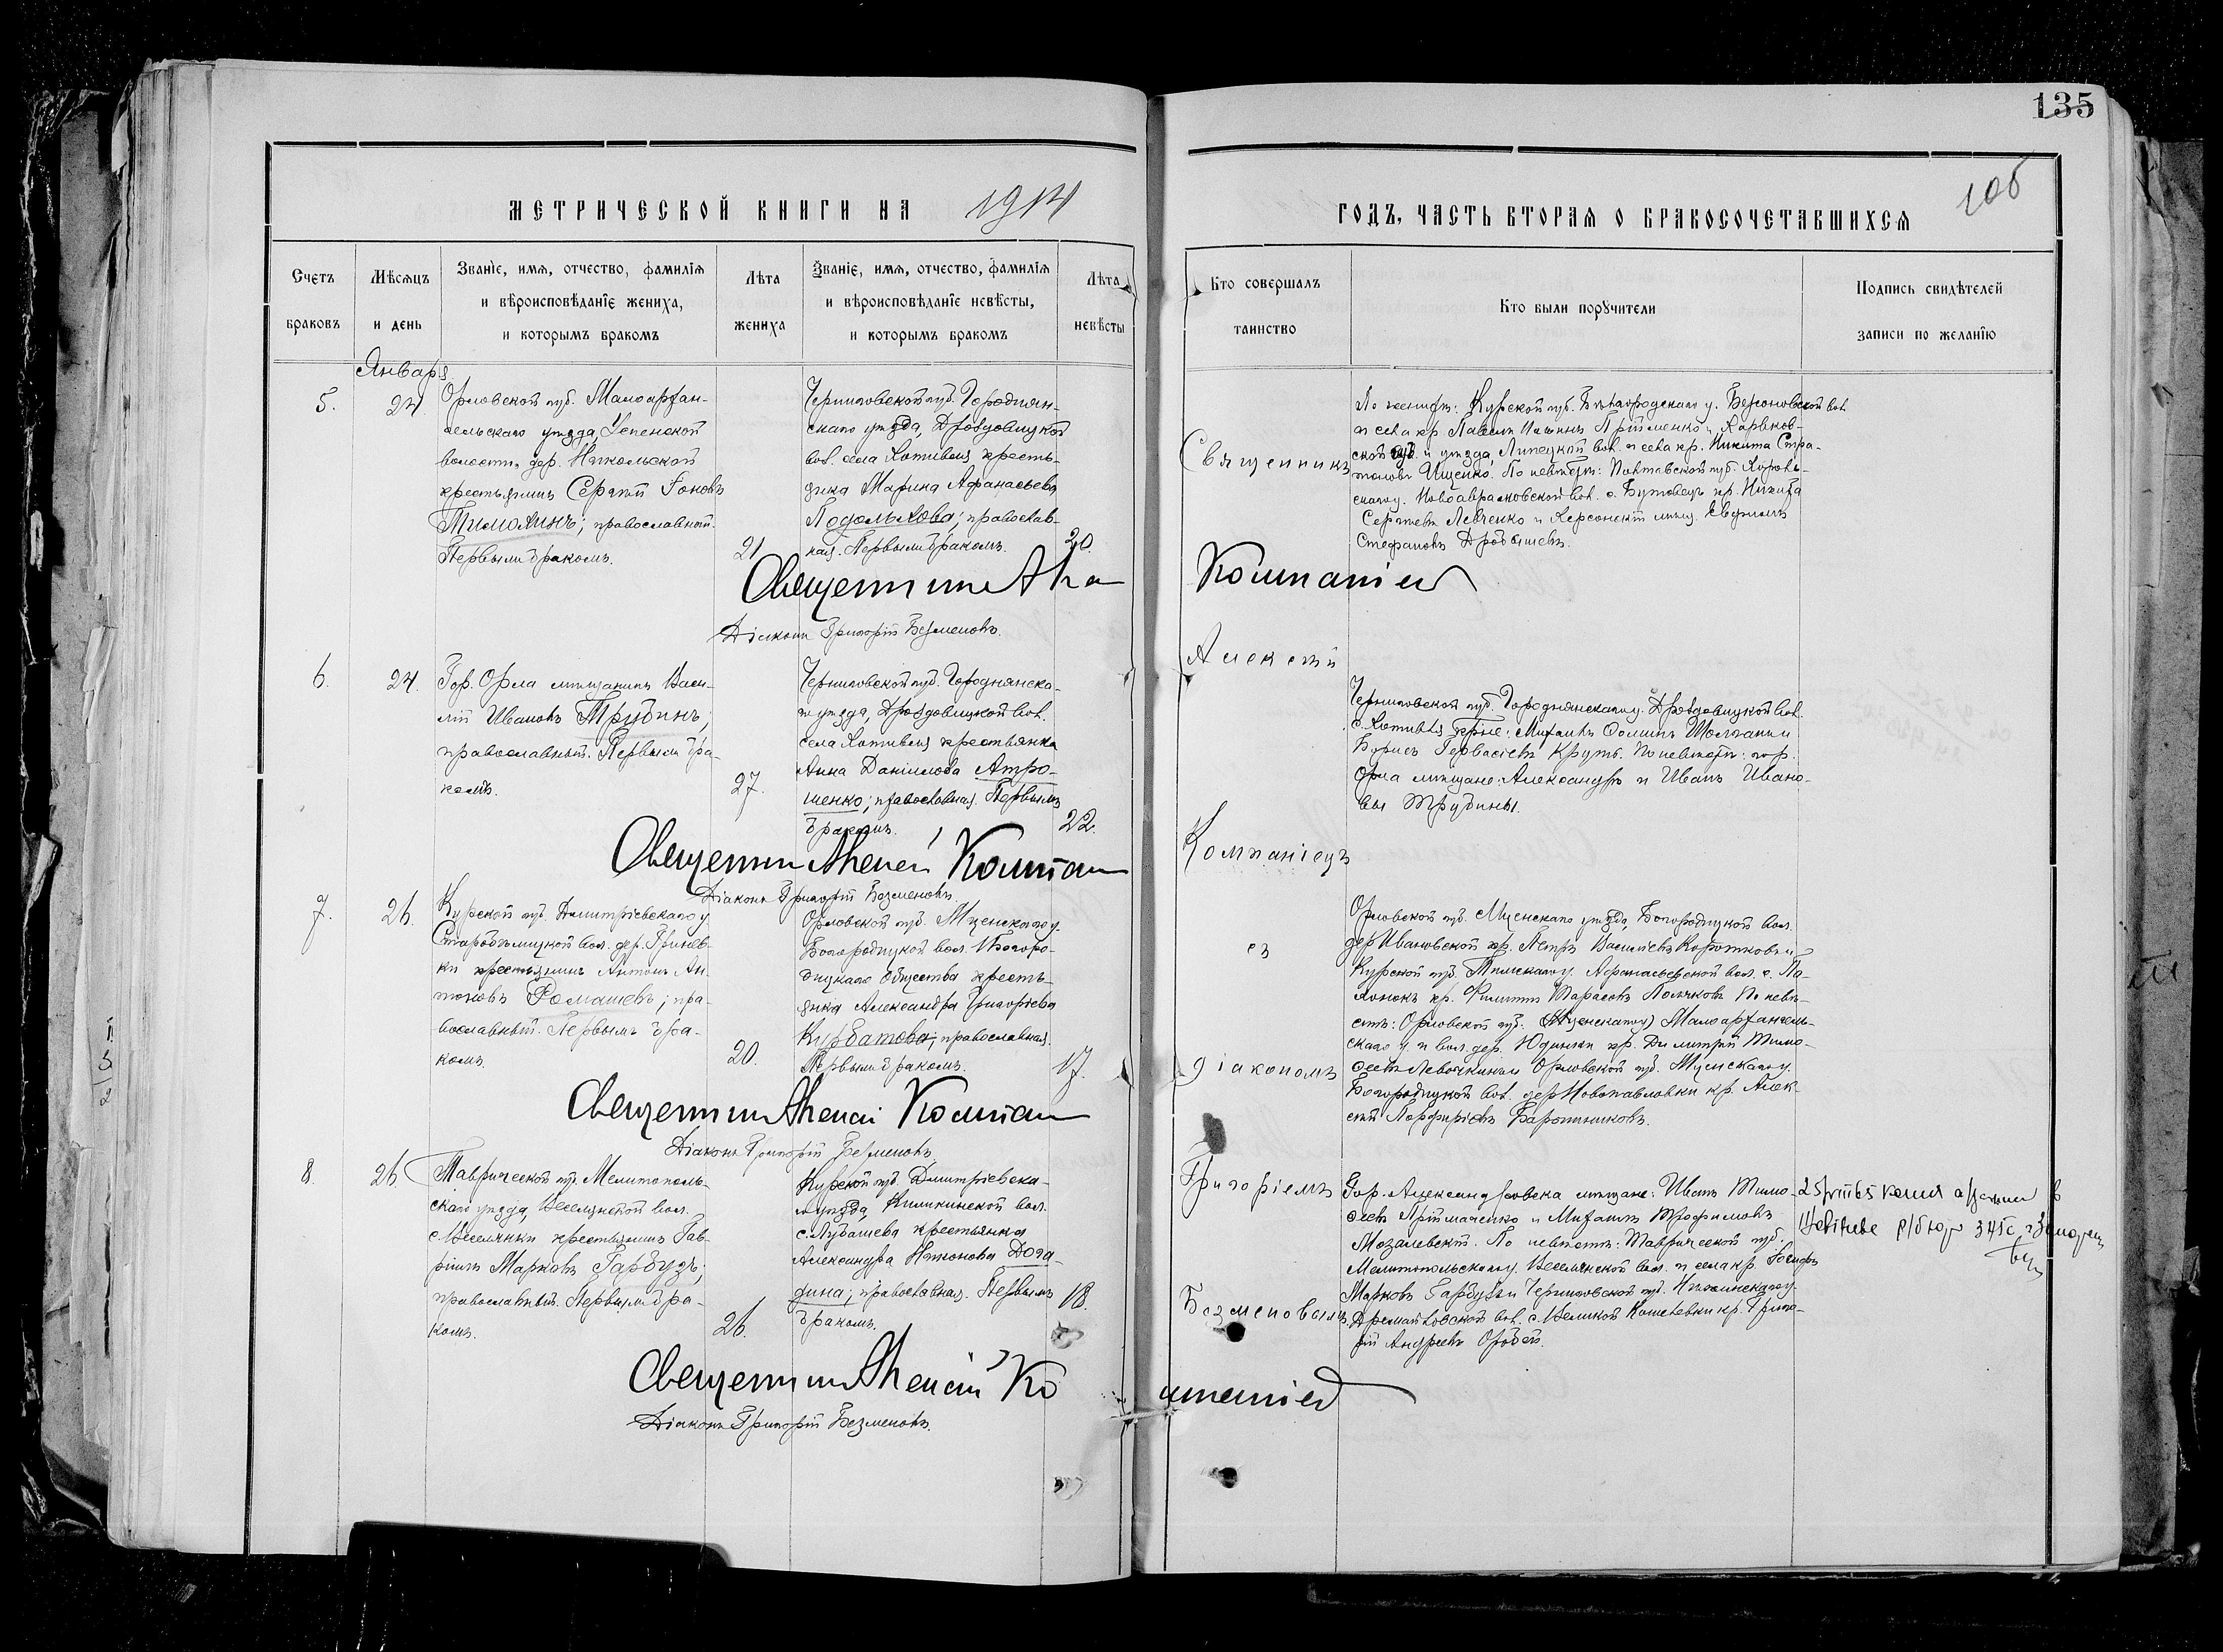 135
106
МЕТРИЧЕСКОЙ КНИГИ НА 1914
ГОДЪ, ЧАСТЬ ВТОРАЯ О БРАКОСОЧЕТАВШИХСЯ
Счетъ браковъ
Мѣсяцъ и день
Званіе, имя, отчество, фамилія
и вѣроисповѣданіе жениха,
и которымъ бракомъ
Лѣта жениха
Званіе, имя, отчество, фамилія
и вѣроисповѣданіе невѣсты,
и которымъ бракомъ
Лѣта невѣсты
Кто совершалъ таинство
Кто были поручители
Подпись свидѣтелей
записи по желанію
Января
5.
24
Орловской губ. Малоархан-
гельскаго уѣзда, Успенской
волости, дер. Никольской
крестьянинъ Сергѣй Іоновъ
Тимохинъ; православный.
Первымъ бракомъ.
21
Черниговской губ. Городнян-
скаго уѣзда, Дроздовицкой
вол. села Хотивля кресть-
янка Марина Аѳанасьева
Подолякова; православ-
ная. Первымъ бракомъ.
20.
По женихѣ: Курской губ. Бѣлгородскаго у. Безсоновской вол.
и села кр. Павелъ
ской губ. и уѣзда, Липецкой вол. и села кр. Никита Стра-
тоновъ Ищенко. По невѣстѣ: Полтавской губ. Хороль-
скаго у. Новоаврамовской вол. с. Бутовецъ кр. Никита
Сергѣевъ Левченко и Херсонскій мѣщ. Евфимъ
Стефановъ Дробышевъ.
Священникъ
Компаніец
Діаконъ Григорій Безменовъ.
6.
24.
Гор. Орла мѣщанинъ Васи-
лій Ивановъ Трубинъ;
православный. Первымъ бра-
комъ.
27.
Черниговской губ. Городнянска-
го уѣзда, Дроздовицкой вол.
села Хотивля крестьянка
Анна Даніилова Атро-
шенко; православная. Первымъ
бракомъ.
22.
Алексѣй
Черниговской губ. Городнянскаго у. Дроздовицкой вол.
с. Хотивля кр-не: Михаилъ Ѳоминъ и
Борисъ Гервасіевъ Круть. По невѣстѣ: гор.
Орла мѣщане: Александръ и Иванъ Ивано-
вы Трубины.
Священникъ Алексѣй Компан
Діаконъ Григорій Безменовъ
Компаніецъ
7.
26.
Курской губ. Дмитріевскаго у.
Старобѣлицкой вол. дер. Гринев-
ки крестьянинъ Антонъ Ан-
тоновъ Ромашевъ; пра-
вославный. Первымъ бра-
комъ.
20.
Орловской губ. Мценскаго у.
Богородицкой вол. и Богоро-
дицкаго общества кресть-
янка Александра Григорьева
Курбатова; православная.
Первымъ бракомъ.
17.
съ
Орловской губ. Мценскаго уѣзда, Богородицкой вол.
дер. Ивановской кр. Петръ Васильевъ Коротковъ и
Курской губ. Тимскаго у. Аѳанасьевской вол. с.
кр. Филиппъ Тарасовъ Поляковъ. По невѣ-
стѣ: Орловской губ. (Мценскаго у.) Малоархангель-
скаго у. и вол. дер. Юдинки кр. Димитрій Тимо-
ѳеевъ Левочкинъ и Орловской губ. Мценскаго у.
Богородицкой вол. дер. Новопавловки кр. Алек-
сѣй Порфиріевъ
діакономъ
Священникъ Алексѣй Компан
Діаконъ Григорій Безменовъ.
8.
26.
Таврической губ. Мелитополь-
скаго уѣзда, Веселянской вол.
с. Веселянки крестьянинъ Гав-
ріилъ Марковъ Гарбузъ;
православный. Первымъ бра-
комъ.
26.
Курской губ. Дмитріевска-
го уѣзда, вол.
с. Лубашева крестьянка
Александра Никонова Дога-
дина; православная. Первымъ
бракомъ.
18.
Григоріемъ
Безменовымъ
Гор. Александровска мѣщане: Иванъ Тимо-
ѳеевъ Пріймаченко и Михаилъ Трофимовъ
Мозалевскій. По невѣстѣ: Таврической губ.
Мелитопольскаго у. Веселянской вол. и села кр. Іосифъ
Марковъ Гарбузъ и Черниговской губ. Нѣжинскаго у.
вол. с. Великой Кошелевки кр. Григо-
рій Андреевъ Оробей.
Священникъ Алексѣй Ко
мпаніец
Діаконъ Григорій Безменовъ.